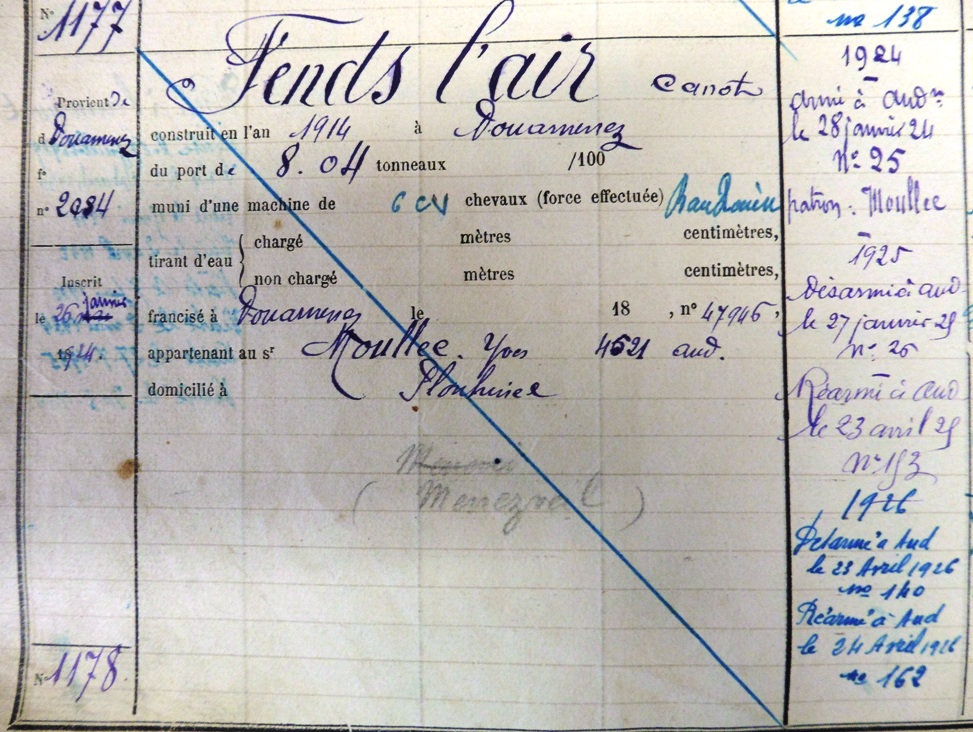 N° 1177
Provient de
d Douarnenez
f°
n° 2984
Inscrit
le 26 janvier
1924.
N° 1178
Fends l'air Canot
construit en l'an 1914 à Douarnenez
du port de 8.04 tonneaux /100
muni d'une machine de 6 CV chevaux (force effectuée) Baudouin
tirant d'eau { chargé mètres centimètres,
non chargé mètres centimètres,
francisé à Douarnenez le 18 , n° 47946,
appartenant au sr Moullec. Yves 4521 aud.
domicilié à Plouhinec
( Menezveil )
no 138
1924
armé à audne
le 28 janvier 24
N° 25
patron. Moullec
1925
Désarmé à aud
le 27 janvier 25
n° 26
Réarmé à aud
le 23 avril 25
n° 153
1926
Désarmé à Aud
le 23 Avril 1926
no 140
Réarmé à Aud
le 24 Avril 1926
no 162